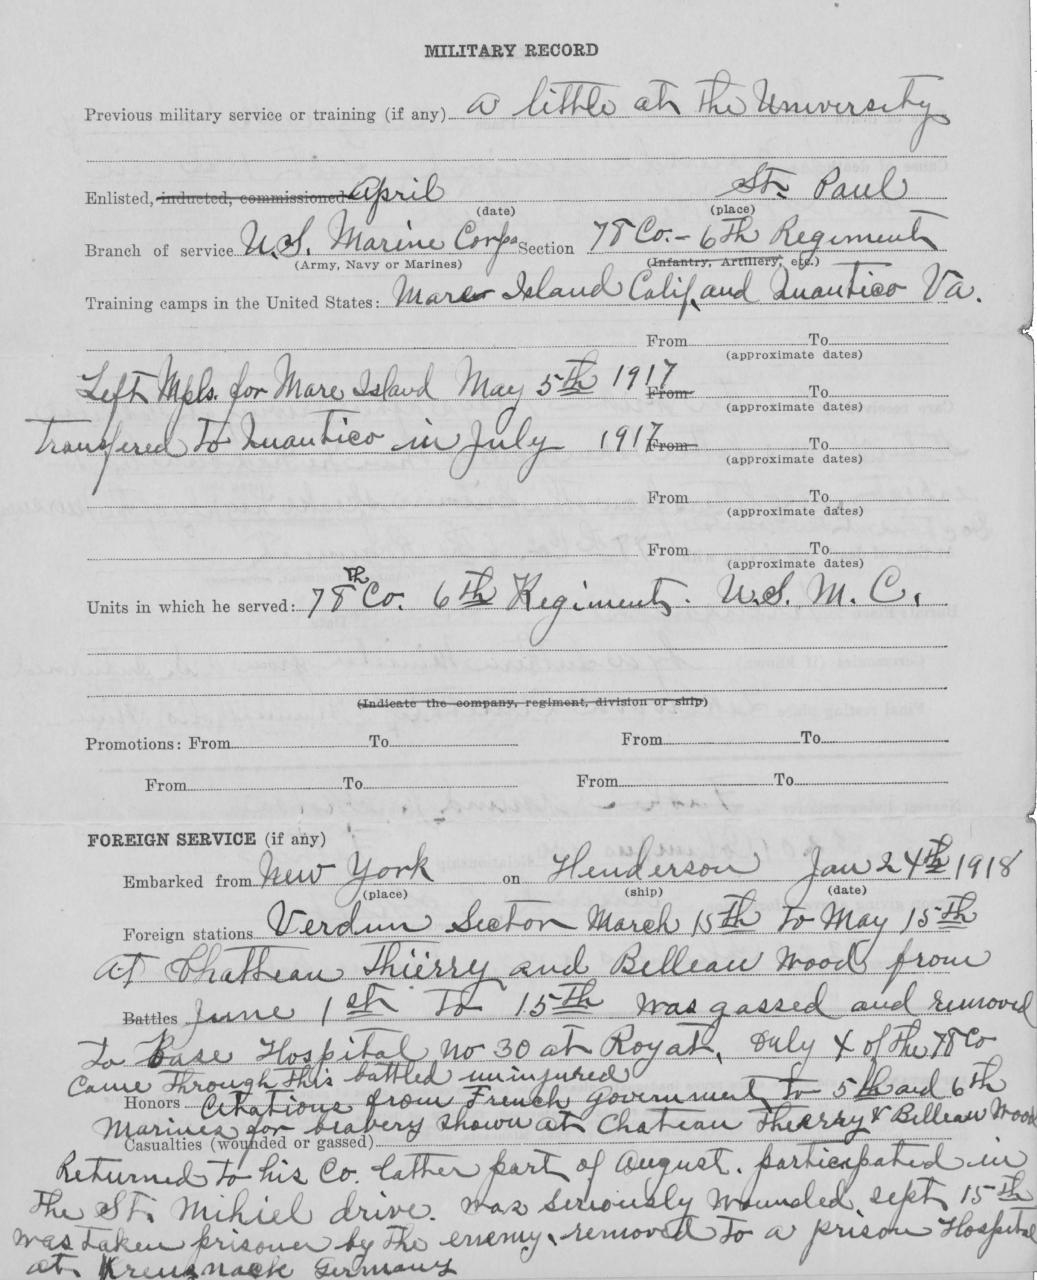 MILITARY RECORD
Previous military service or training (if any) a little at the University
Enlisted, inducted, commissioned April St. Paul
(date) (place)
Branch of service U.S. Marine Corps Section 78 Co. - 6th Regiment
(Army, Navy or Marines) (Infantry, Artillery, etc.)
Training camps in the United States: Mare Island Calif, and Quantico Va.
From To
(approximate dates)
Left Mpls. for Mare Island May 5th 1917 From To
(approximate dates)
Transfered to Quantico in July 1917 From To
(approximate dates)
From To
(approximate dates)
From To
(approximate dates)
Units in which he served: 78th Co. 6th Regiment. U.S. M. C.
(Indicate the company, regiment, division or ship)
Promotions: From To From To
From To From To
FOREIGN SERVICE (if any)
Embarked from New York on Henderson Jan 24th 1918
(place) (ship) (date)
Foreign stations Verdun Section March 15th to May 15th
At Chatteau Thierry and Belleau Wood from
Battles June 1st to 15th was gassed and removed
to Base Hospital no 30 at Royat, Only 4 of the 78 Co
came through this battled uninjured
Honors Citations from French Government to 5th and 6th
Marines for bravery shown at Chateau Thierry & Belleau Wood
Casualties (wounded or gassed)
Returned to his Co. latter part of August. participated in
the St. Mihiel drive. was seriously wounded sept 15th
was taken prisoner by the enemy, removed to a prison Hospital
at Kreusnack Germany